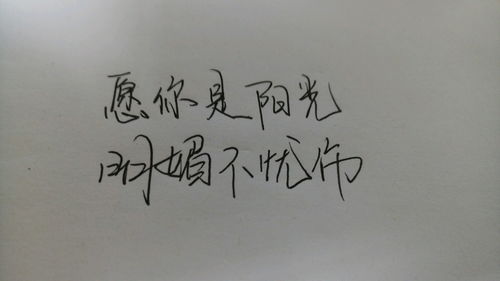 愿你是阳光
明媚不忧伤